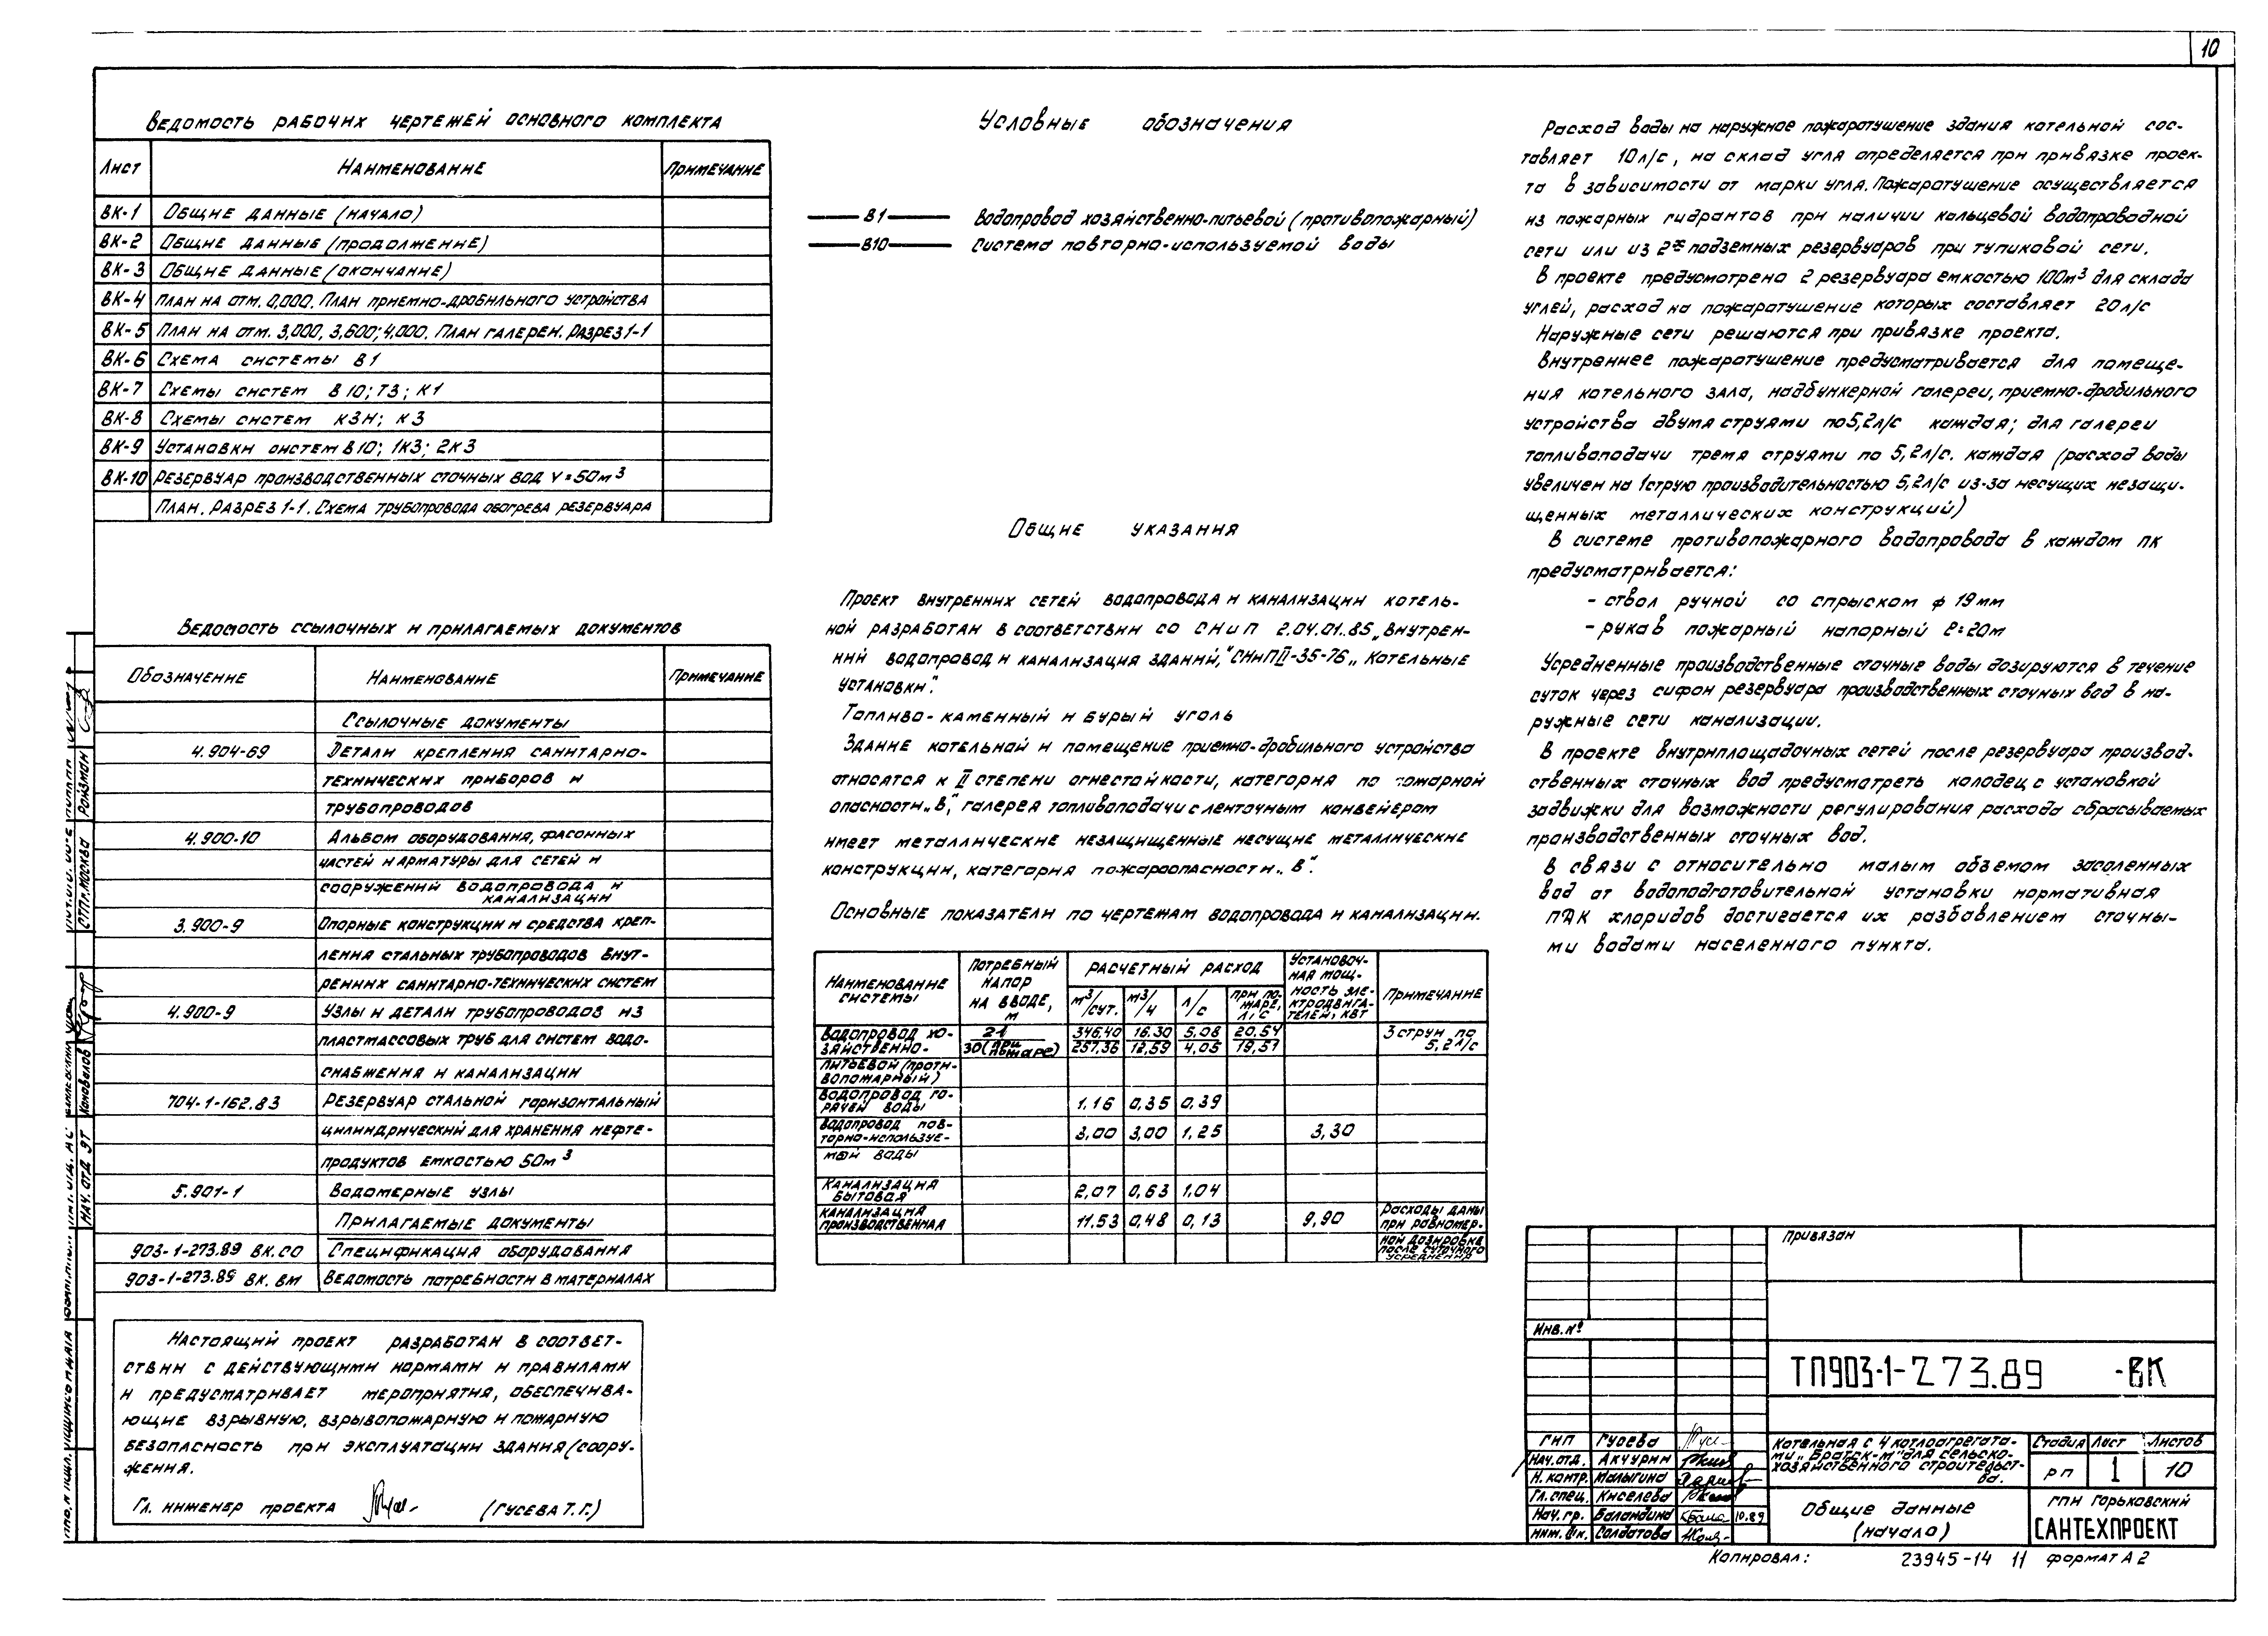 10
Ведомость рабочих чертежей основного комплекта
Лист Наименование Примечание
ВК-1 Общие данные (начало)
ВК-2 Общие данные (продолжение)
ВК-3 Общие данные (окончание)
ВК-4 План на отм. 0,000. План приемно-дробильного устройства
ВК-5 План на отм. 3,000, 3,600; 4,000. План галереи. Разрез 1-1
ВК-6 Схема системы В1
ВК-7 Схемы систем В10; Т3; К1
ВК-8 Схемы систем К3Н; К3
ВК-9 Установки систем В10; 1К3; 2К3
ВК-10 Резервуар производственных сточных вод V=50м³
План. Разрез 1-1. Схема трубопровода обогрева резервуара
Ведомость ссылочных и прилагаемых документов
Обозначение Наименование Примечание
Ссылочные документы
4.904-69 Детали крепления санитарно-
технических приборов и
трубопроводов
4.900-10 Альбом оборудования, фасонных
частей и арматуры для сетей и
сооружений водопровода и
канализации
3.900-9 Опорные конструкции и средства креп-
ления стальных трубопроводов внут-
ренних санитарно-технических систем
4.900-9 Узлы и детали трубопроводов из
пластмассовых труб для систем водо-
снабжения и канализации
704-1-162.83 Резервуар стальной горизонтальный
цилиндрический для хранения нефте-
продуктов емкостью 50м³
5.901-1 Водомерные узлы
Прилагаемые документы
903-1-273.89 ВК.СО Спецификация оборудования
903-1-273.89 ВК.ВМ Ведомость потребности в материалах
Настоящий проект разработан в соответ-
ствии с действующими нормами и правилами
и предусматривает мероприятия, обеспечива-
ющие взрывную, взрывопожарную и пожарную
безопасность при эксплуатации здания (соору-
жения.
Гл. инженер проекта (Гусева Т.Г.)
Условные обозначения
В1 Водопровод хозяйственно-питьевой (противопожарный)
В10 Система повторно-используемой воды
Общие указания
Проект внутренних сетей водопровода и канализации котель-
ной разработан в соответствии со СНиП 2.04.01.85 „Внутрен-
ний водопровод и канализация зданий," СНиП II-35-76 „Котельные
установки".
Топливо-каменный и бурый уголь
Здание котельной и помещение приемно-дробильного устройства
относятся к II степени огнестойкости, категория по пожарной
опасности „В", галерея топливоподачи с ленточным конвейером
имеет металлические незащищенные несущие металлические
конструкции, категория пожароопасности „В".
Основные показатели по чертежам водопровода и канализации.
Наименование системы Потребный напор на вводе, м Расчетный расход м³/сут. м³/ч л/с при пожаре, л/с Установочная мощность электродвигателей, кВт Примечание
Водопровод хо- 21 346.40 16.30 5.08 20.54 3 струи по
зяйственно- 30 (при пожаре) 257,36 12,59 4,05 19,51 5,2 л/с
питьевой (проти-
вопожарный)
Водопровод го-
рячей воды 1.16 0,35 0,39
Водопровод пов-
торно-используе- 3,00 3,00 1,25 3,30
мой воды
Канализация
бытовая 2,07 0,63 1,04
Канализация
производственная 11.53 0,48 0,13 9,90 Расходы даны
при равномер-
ной дозировке
после суточного
усреднения
Расход воды на наружное пожаротушение здания котельной сос-
тавляет 10л/с, на склад угля определяется при привязке проек-
та в зависимости от марки угля. Пожаротушение осуществляется
из пожарных гидрантов при наличии кольцевой водопроводной
сети или из 2х подземных резервуаров при тупиковой сети.
В проекте предусмотрено 2 резервуара емкостью 100м³ для склада
углей, расход на пожаротушение которых составляет 20л/с
Наружные сети решаются при привязке проекта.
Внутреннее пожаротушение предусматривается для помеще-
ния котельного зала, надбункерной галереи, приемно-дробильного
устройства двумя струями по 5,2л/с каждая; для галереи
топливоподачи тремя струями по 5,2л/с. каждая (расход воды
увеличен на 1 струю производительностью 5,2л/с из-за несущих незащи-
щенных металлических конструкций)
В системе противопожарного водопровода в каждом ПК
предусматривается:
- ствол ручной со спрыском ф 19мм
- рукав пожарный напорный ℓ=20м
Усредненные производственные сточные воды дозируются в течение
суток через сифон резервуара производственных сточных вод в на-
ружные сети канализации.
В проекте внутриплощадочных сетей после резервуара производ-
ственных сточных вод предусмотреть колодец с установкой
задвижки для возможности регулирования расхода сбрасываемых
производственных сточных вод.
В связи с относительно малым объемом засоленных
вод от водоподготовительной установки нормативная
ПДК хлоридов достигается их разбавлением сточны-
ми водами населенного пункта.
Привязан
Инв.№
ТП903-1-273.89 -ВК
ГИП Гусева
Нач.отд. Акчурин
Н.контр. Малыгина
Гл.спец. Киселева
Нач.гр. Баландина 10.89
Инж. IIк. Солдатова
Котельная с 4 котлоагрегата-
ми „Братск-М" для сельско-
хозяйственного строительст-
ва.
Стадия Лист Листов
РП 1 10
Общие данные
(начало)
ГПИ Горьковский
САНТЕХПРОЕКТ
Копировал: 23945-14 11 формат А2
СТП г.Москва Ройзман
Нач. отд ЭТ Коновалов